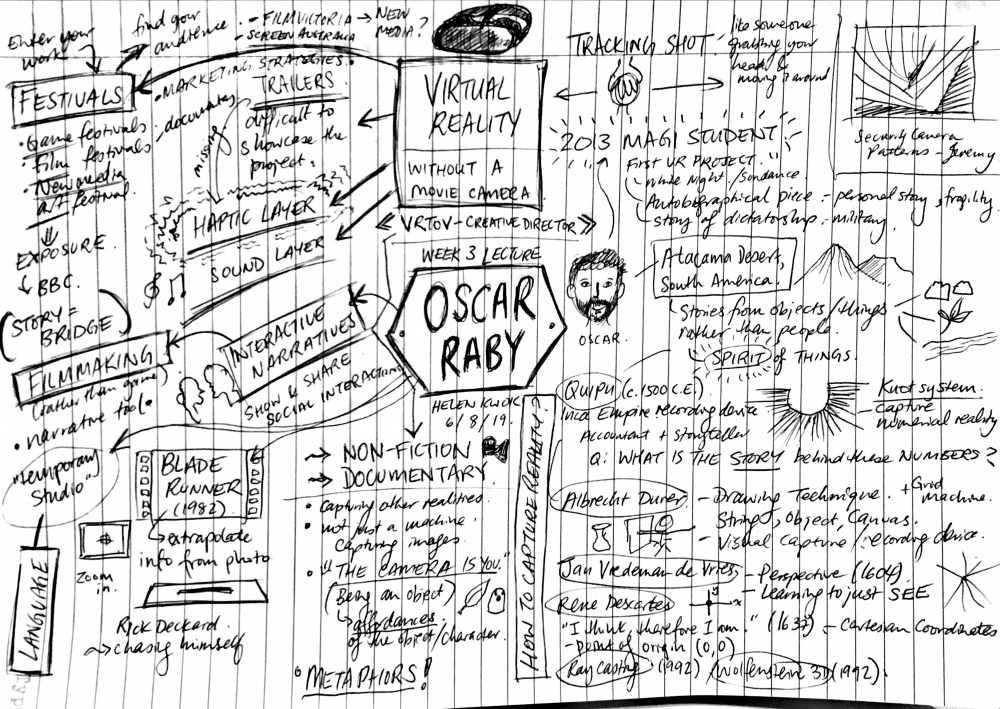 Enter your
work
find your
audience.
- FILMVICTORIA → NEW
MEDIA?
- SCREEN AUSTRALIA
FESTIVALS
• MARKETING STRATEGIES.
TRAILERS
difficult to
showcase the
project.
missing
• Game festivals
• Film festivals
• New media
art festival.
EXPOSURE.
BBC.
VIRTUAL
REALITY
WITHOUT A
MOVIE CAMERA
<< VRTOV - CREATIVE DIRECTOR >>
HAPTIC LAYER
SOUND LAYER
(STORY =
BRIDGE)
FILMMAKING
(rather than game)
• narrative tool.
"temporary
studio"
LANGUAGE
INTERACTIVE
NARRATIVES
SHOW & SHARE
SOCIAL INTERACTIONS
WEEK 3 LECTURE
OSCAR
RABY
HELEN KWOK
6/8/19.
BLADE
RUNNER
(1982)
extrapolate
info from photo
Zoom
in.
Rick Deckard
chasing himself
→ NON-FICTION
→ DOCUMENTARY
• Capturing other realities.
• not just a machine.
Capturing images.
• "THE CAMERA IS YOU."
(Being an object)
affordances
of the object/character.
• METAPHORS!
HOW TO CAPTURE REALITY?
TRACKING SHOT
like someone
grabbing your
head &
moving it around
Security Camera
Patterns - Jeremy
2013 MAGI STUDENT
FIRST VR PROJECT.
White Night / Sundance
Autobiographical piece - personal story, fragility.
story of dictatorship - military.
OSCAR.
Atacama Desert,
South America.
Stories from objects/things
rather than people.
SPIRIT of THINGS.
QUIPU (c. 1500 C.E.)
Inca Empire recording device
Accountant + storyteller
Knot system.
- capture
numerial reality
Q: WHAT IS THE STORY behind these NUMBERS?
Albrecht Durer - Drawing Technique. + Grid
machine.
String, object, Canvas.
- Visual Capture / recording device.
Jan Vredeman de Vries, - Perspective (1604).
- Learning to just SEE
Rene Descartes
"I think, therefore I am." (1637) - Cartesian Coordinates
- point of origin (0,0)
Ray Casting (1992) Wolfenstein 3D (1992).